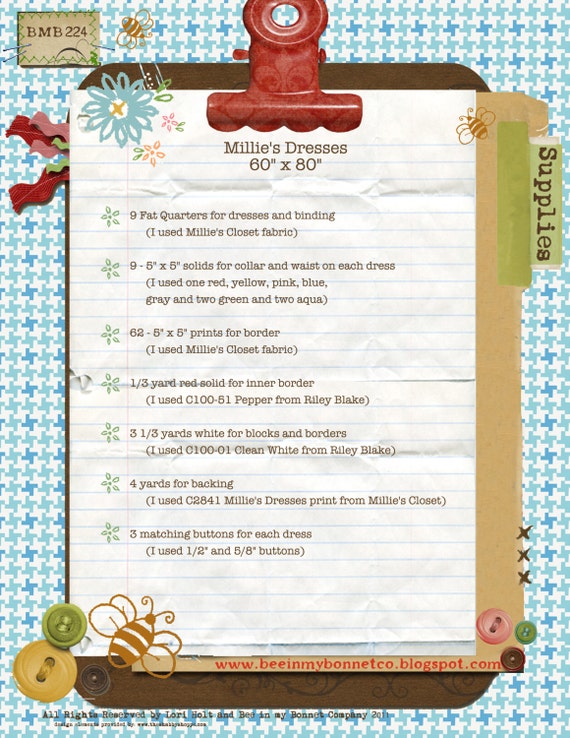 BMB 224
Millie's Dresses
60" x 80"
Supplies
9 Fat Quarters for dresses and binding
(I used Millie's Closet fabric)
9 - 5" x 5" solids for collar and waist on each dress
(I used one red, yellow, pink, blue,
gray and two green and two aqua)
62 - 5" x 5" prints for border
(I used Millie's Closet fabric)
1/3 yard red solid for inner border
(I used C100-51 Pepper from Riley Blake)
3 1/3 yards white for blocks and borders
(I used C100-01 Clean White from Riley Blake)
4 yards for backing
(I used C2841 Millie's Dresses print from Millie's Closet)
3 matching buttons for each dress
(I used 1/2" and 5/8" buttons)
www.beeinmybonnetco.blogspot.com
All Rights Reserved by Lori Holt and Bee in my Bonnet Company
design elements provided by